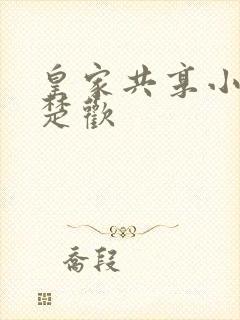 皇家共享小
楚歡
喬段